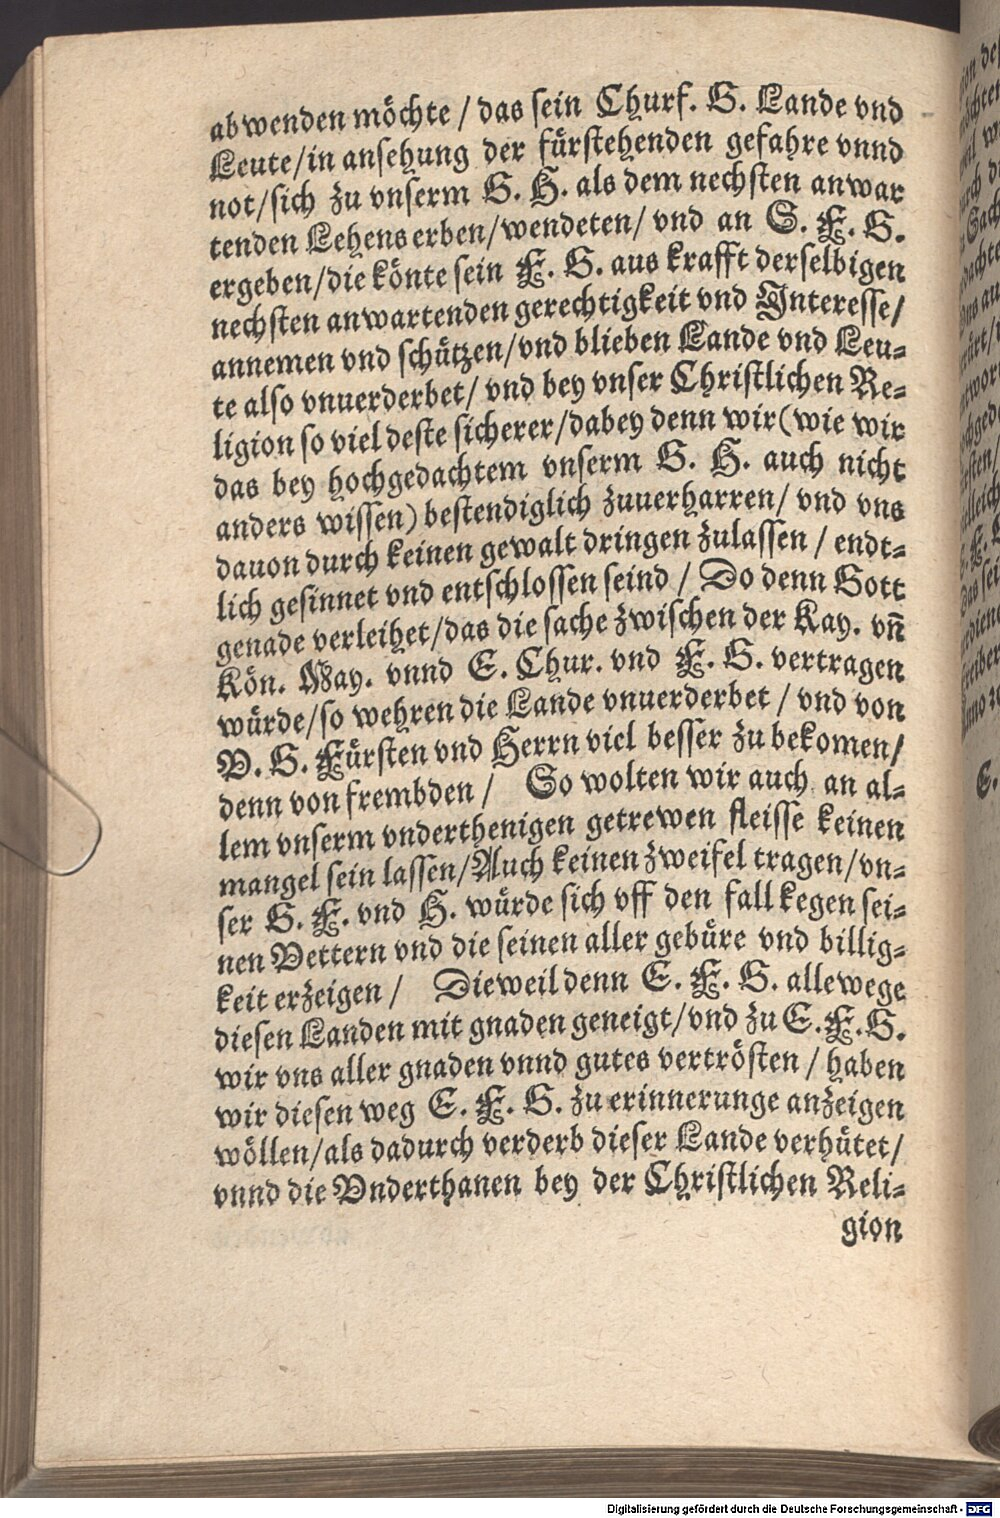 abwenden möchte / das sein Churf. G. Lande vnd
Leute/in ansehung der fürstehenden gefahre vnnd
not/sich zu vnserm G. H. als dem nechsten anwar
tenden Lehenserben/wendeten/ vnd an S. F. G.
ergeben/die könte sein F. G. aus krafft derselbigen
nechsten anwartenden gerechtigkeit vnd Interesse/
annemen vnd schützen/vnd blieben Lande vnd Leu⸗
te also vnuerderbet/ vnd bey vnser Christlichen Re⸗
ligion so viel deste sicherer/dabey denn wir(wie wir
das bey hochgedachtem vnserm G. H. auch nicht
anders wissen) bestendiglich zuuerharren/ vnd vns
dauon durch keinen gewalt dringen zulassen / endt⸗
lich gesinnet vnd entschlossen seind / Do denn Gott
genade verleihet/das die sache zwischen der Kay. vñ
Kön. May. vnnd E. Chur. vnd F. G. vertragen
würde/so wehren die Lande vnuerderbet / vnd von
V. G. Fürsten vnd Herrn viel besser zu bekomen/
denn von frembden / So wolten wir auch an al⸗
lem vnserm vnderthenigen getrewen fleisse keinen
mangel sein lassen/Auch keinen zweifel tragen/vn⸗
ser G. F. vnd H. würde sich vff den fall kegen sei⸗
nen Vettern vnd die seinen aller gebüre vnd billig⸗
keit erzeigen / Dieweil denn E. F. G. allewege
diesen Landen mit gnaden geneigt/vnd zu E.F.G.
wir vns aller gnaden vnnd gutes vertrösten / haben
wir diesen weg E. F. G. zu erinnerunge anzeigen
wöllen/als dadurch verderb dieser Lande verhütet/
vnnd die Vnderthanen bey der Christlichen Reli⸗
gion
Digitalisierung gefördert durch die Deutsche Forschungsgemeinschaft - DFG